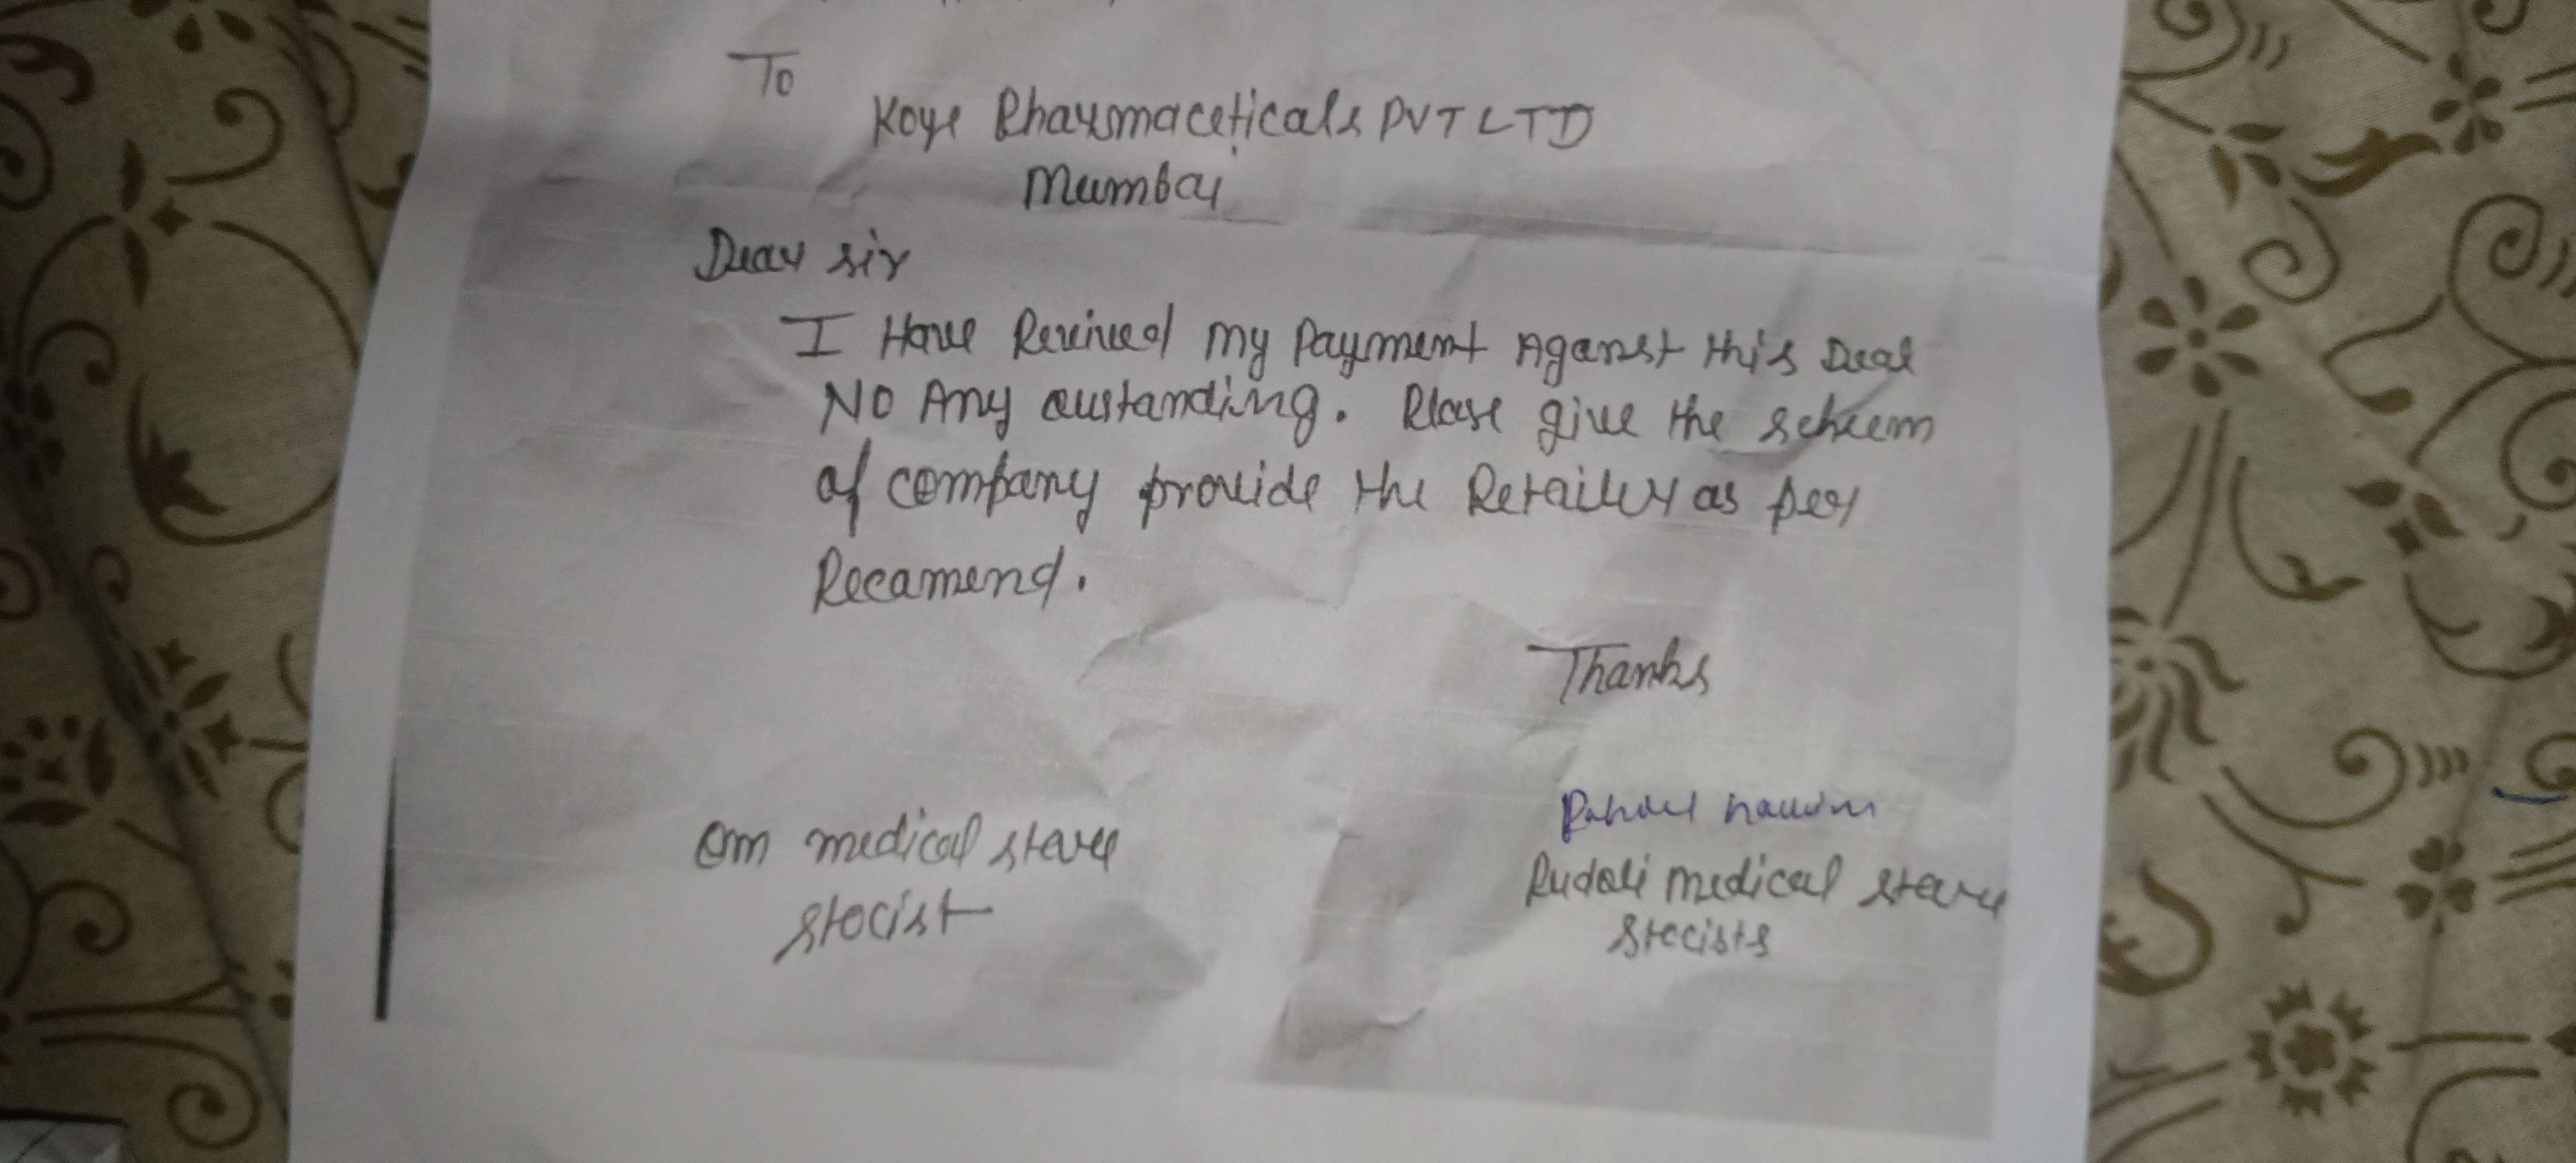 To
Koye Pharmaceticals PVT LTD
Mumbai
Dear sir
I Have Recived my Payment Aganst this Deal
NO Any oustanding. Please give the scheem
of company provide the Retailer as per
Recamend.
Thanks
Om medical store
stocist
Rudali medical store
stocists